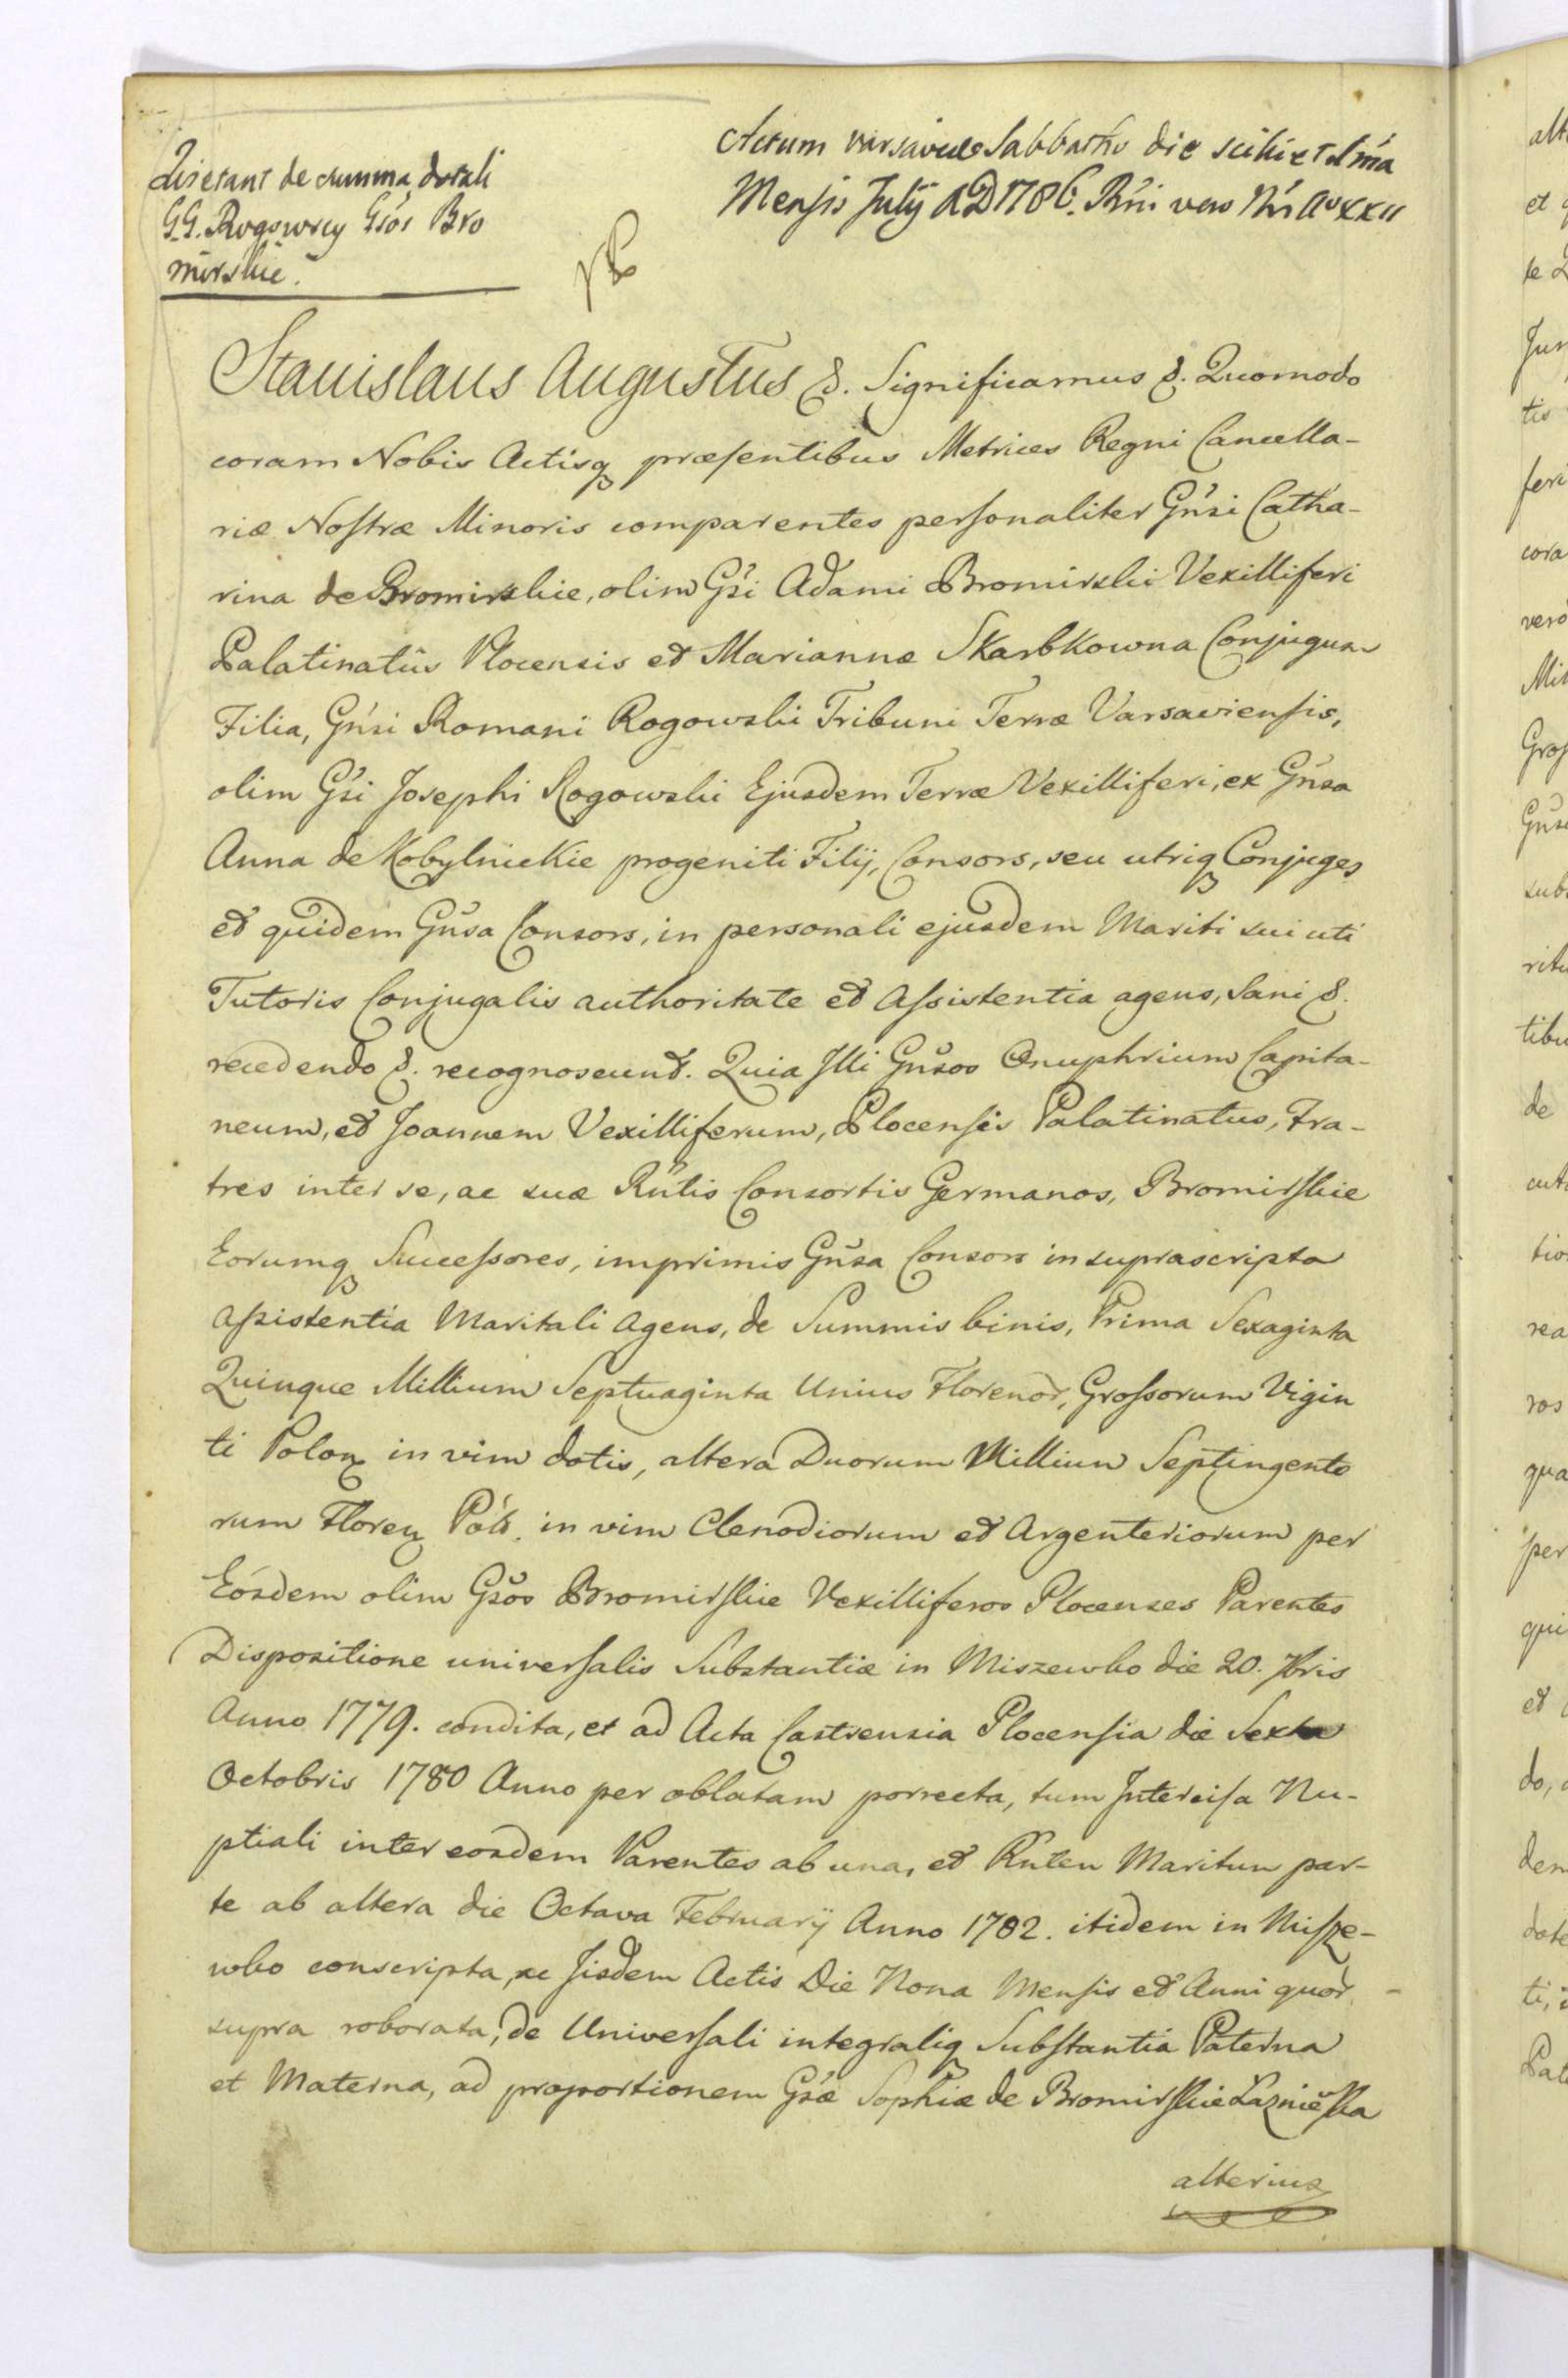 Quietant de summa dotali
G.G. Rogowscy Gsos Bro
mirskie.
Actum Varsaviae Sabbatho die
Mensis Julij AD 1786. Rni vero Nri Ao XXII
Stanislaus Augustus &. Significamus &. Quomodo
coram Nobis Actisq præsentibus Metrices Regni Cancella-
riæ Nostræ Minoris comparentes personaliter Gnsi Catha-
rina de Bromirskie, olim Gsi Adami Bromirski Vexilliferi
Palatinatûs Plocensis et Mariannæ Skarbkowna Conjugum
Filia, Gnsi Romani Rogowski Tribuni Terræ Varsaviensis,
olim Gsi Josephi Rogowski Ejusdem Terræ Vexilliferi, ex Gnsa
Anna de Kobylnickie progeniti Filij, Consors, seu utriq Conjuges
et quidem Gnsa Consors, in personali ejusdem Mariti sui uti
Tutoris Conjugalis authoritate et Assistentia agens, Sani &.
recedendo &. recognoscunt. Quia Illi Gnsos Onuphrium Capita-
neum, et Joannem Vexilliferum, Plocensis Palatinatus, Fra-
tres inter se, ac suæ Rntis Consortis Germanos, Bromirskie
Eorumq Successores, imprimis Gnsa Consors in suprascripta
Assistentia Maritali Agens, de Summis binis, Prima Sexaginta
Quinque Millium Septuaginta Unius Florenor, Grossorum Vigin
ti Polon in vim dotis, altera Duorum Millium Septingento
rum Floren Pol. in vim Clenodiorum et Argenteriorum per
Eosdem olim Gsos Bromirskie Vexilliferos Plocenses Parentes
Dispositione universalis Substantiæ in Miszewko die 20. Xbris
Anno 1779. condita, et ad Acta Castrensia Plocensia die Sexta
Octobris 1780 Anno per oblatam porrecta, tum Intercisa Nu-
ptiali inter eosdem Parentes ab una, et Rnten Maritum par-
te ab altera die Octava Februarij Anno 1782. itidem in Misze-
wko conscripta, ac Iisdem Actis Die Nona Mensis et Anni quor
supra roborata, de Universali integraliq Substantia Paterna
et Materna, ad proportionem Gsæ Sophiæ de Bromirskie
alterius